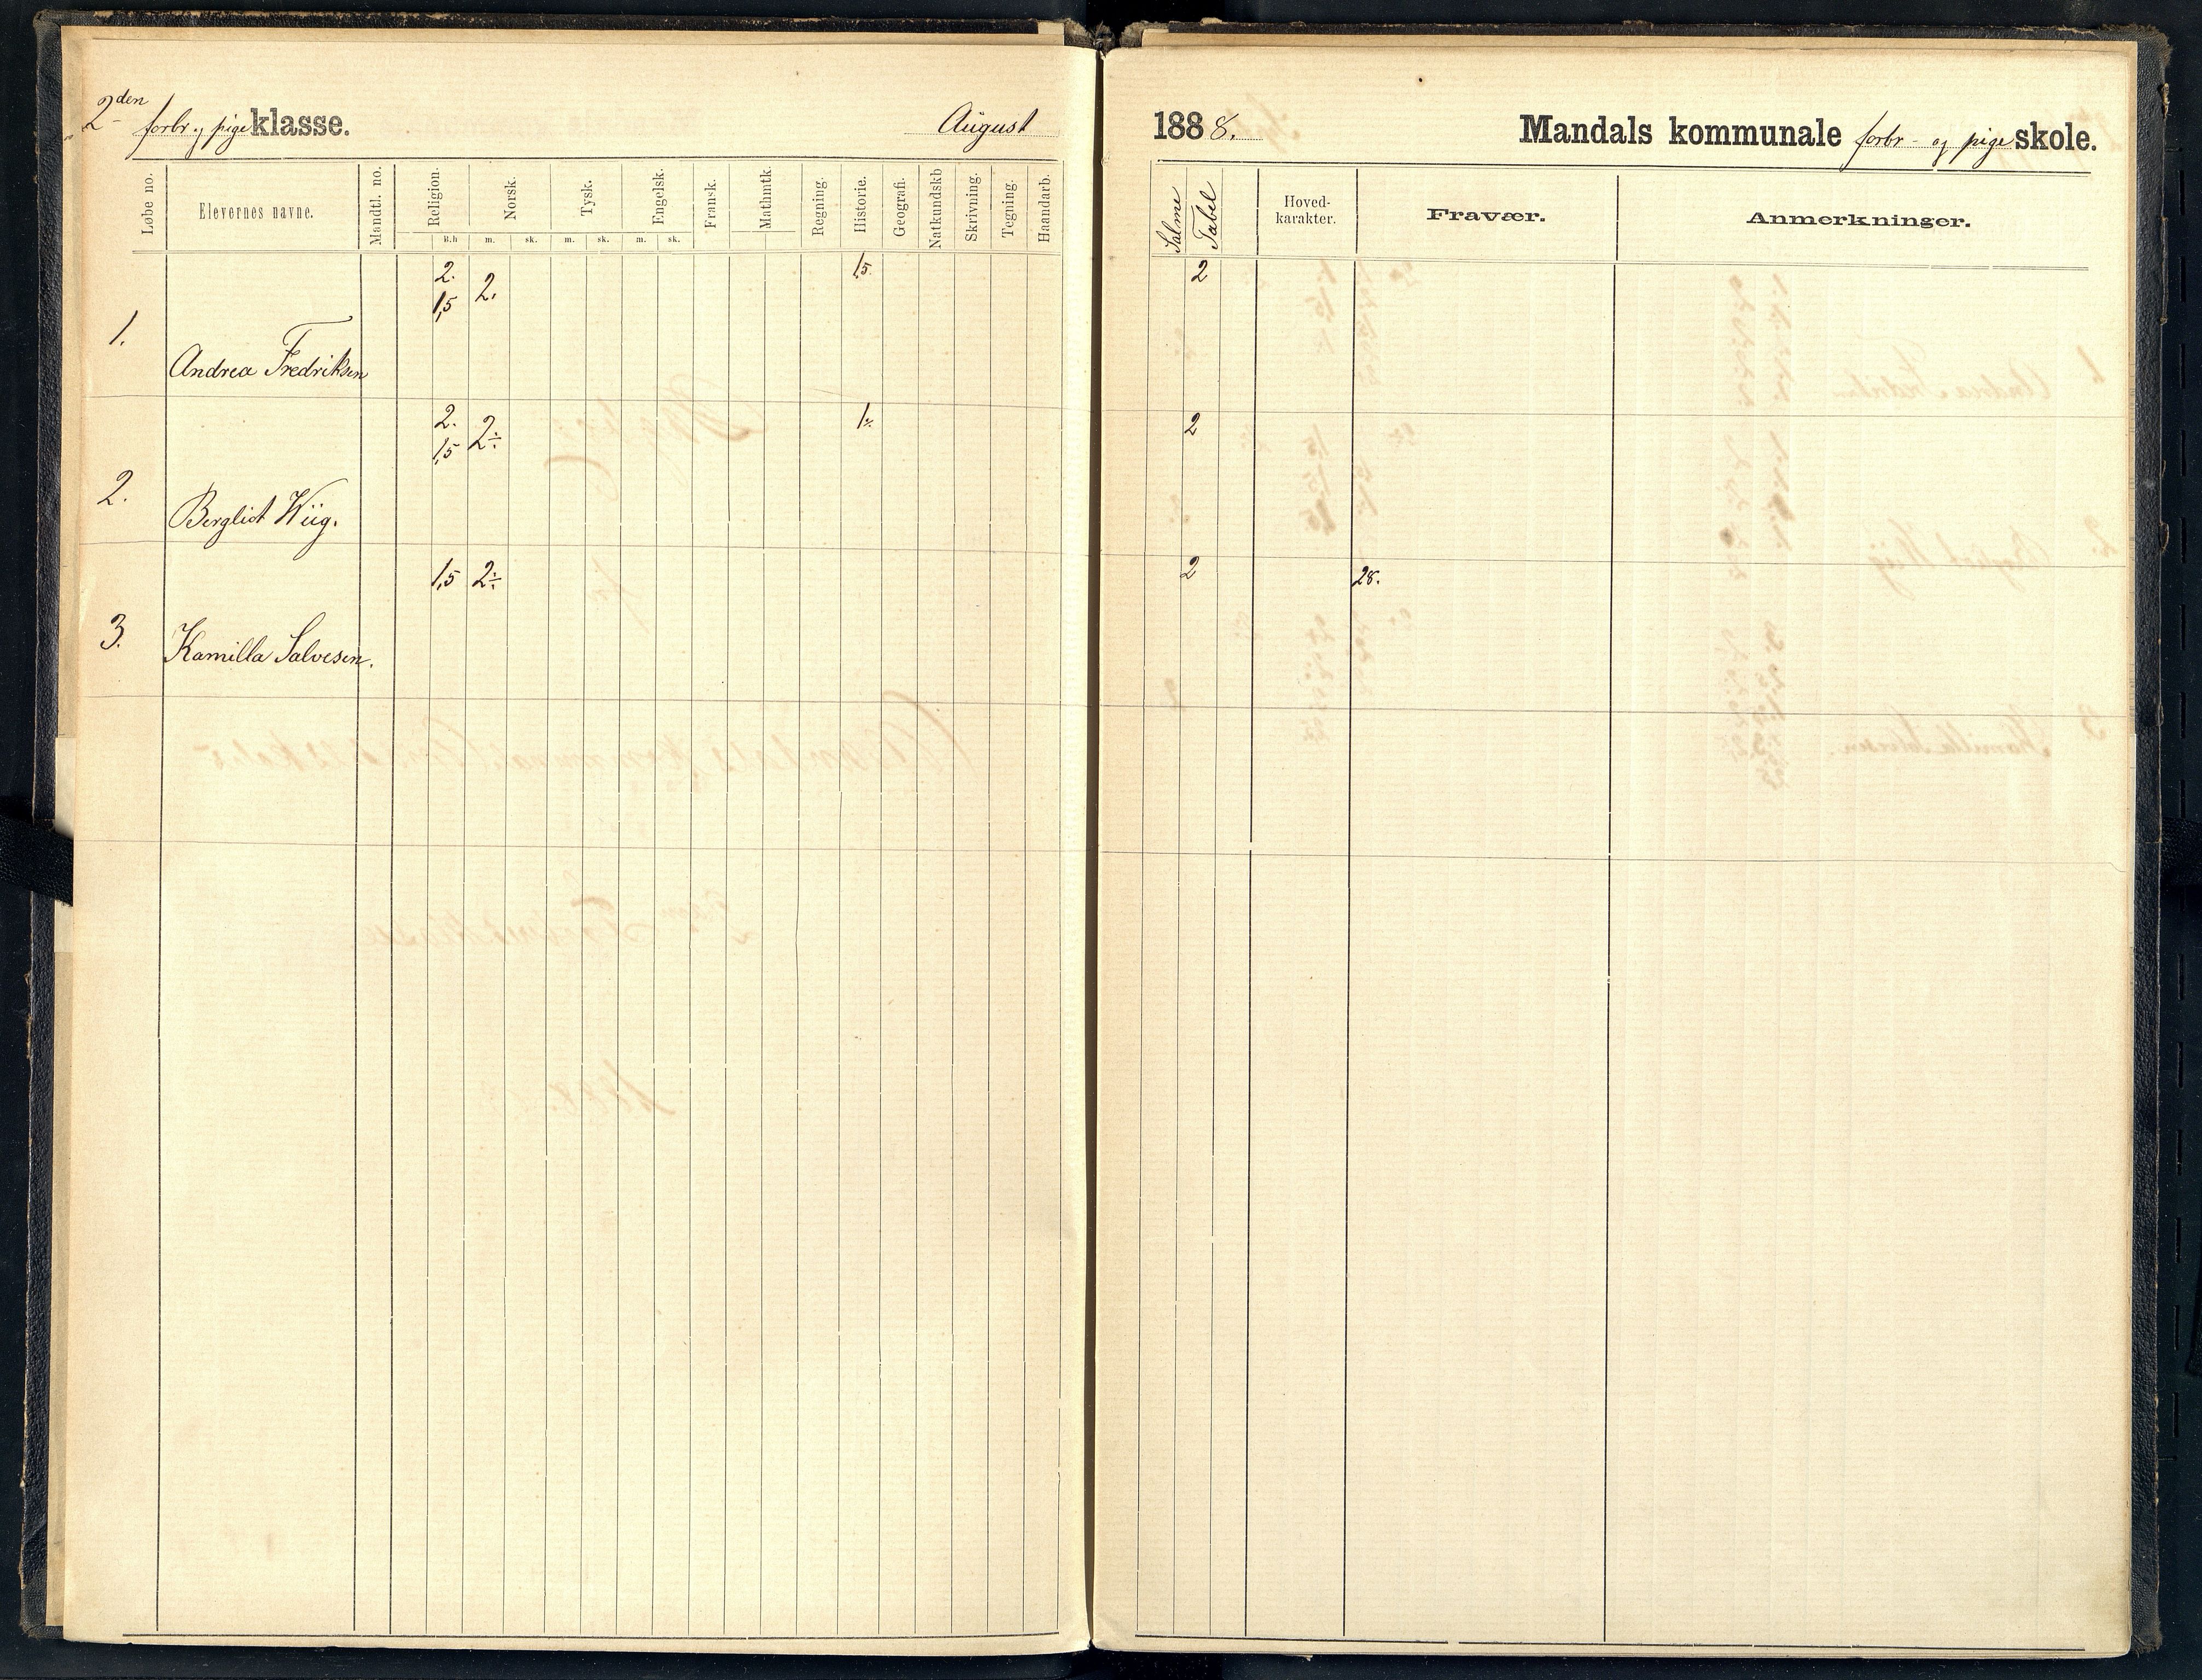 2den forbr. og pige klasse. August
Løbe no. Elevernes navne. Mandtl. no. Religion. Norsk. Tysk. Engelsk. Fransk. Mathmtk. Regning. Historie. Geografi. Natkundskb Skrivning. Tegning. Haandarb.
B.h m. sk. m. sk. m. sk.
2. 2. 1,5
1,5
1. Andrea Fredriksen
2. 2÷ 1÷
1,5
2. Bergliot Wiig.
1,5 2÷
3. Kamilla Salvesen.
1888. Mandals kommunale forbr- og pige skole.
Salme Tabel Hoved-karakter. Fravær. Anmerkninger.
2
2
2 28.